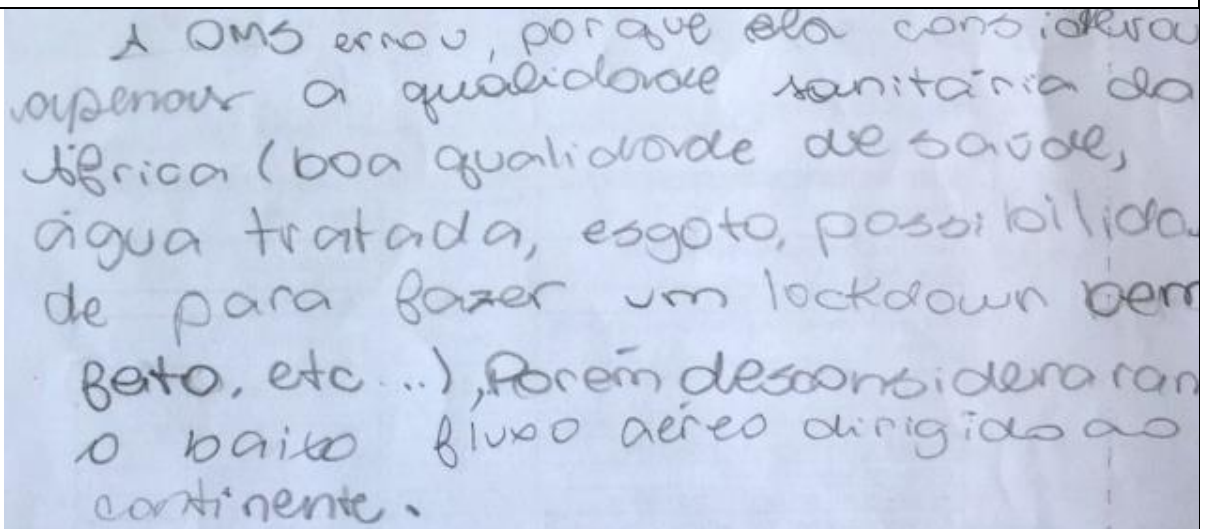 A OMS errou, porque ela considerou
apenas a qualidade sanitária da
África (boa qualidade de saúde,
água tratada, esgoto, possibilida-
de para fazer um lockdown bem
feito, etc...), Porém desconsideraran
o baixo fluxo aéreo dirigido ao
continente.